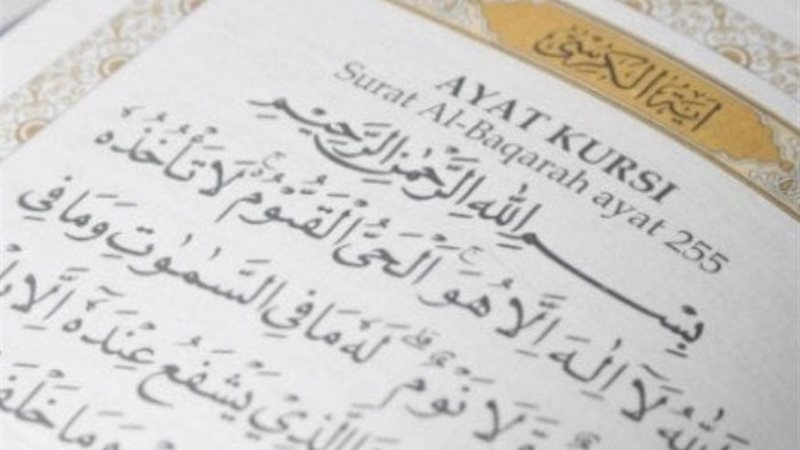 اية الكرسي
AYAT KURSI
Surat Al-Baqarah ayat 255
بِسْمِ اللهِ الرَّحْمٰنِ الرَّحِيْمِ
للهُ لَآ اِلٰهَ اِلَّا هُوَ ۚ اَلْحَيُّ الْقَيُّوْمُ ەۚ لَا تَأْخُذُهٗ
وَّلَا نَوْمٌ ۗ لَهٗ مَا فِى السَّمٰوٰتِ وَمَا فِى
الَّذِيْ يَشْفَعُ عِنْدَهٗٓ اِلَّا
وَمَا